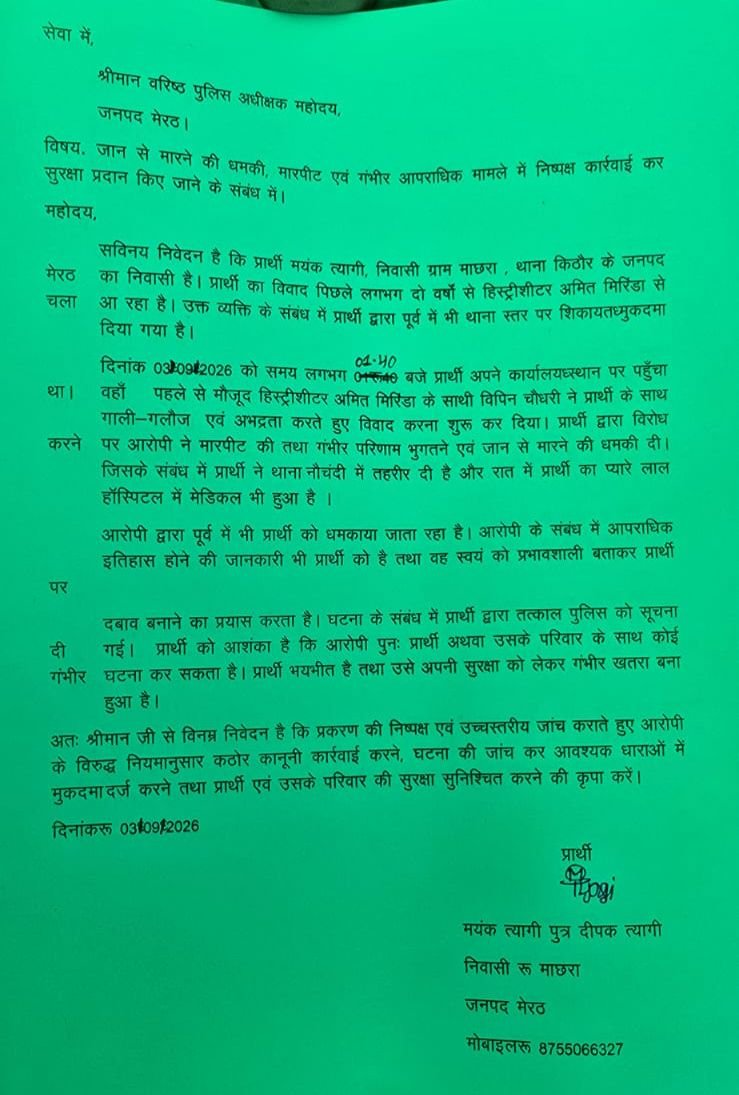 सेवा में,
श्रीमान वरिष्ठ पुलिस अधीक्षक महोदय,
जनपद मेरठ।
विषय. जान से मारने की धमकी, मारपीट एवं गंभीर आपराधिक मामले में निष्पक्ष कार्रवाई कर
सुरक्षा प्रदान किए जाने के संबंध में।
महोदय,
सविनय निवेदन है कि प्रार्थी मयंक त्यागी, निवासी ग्राम माछरा , थाना किठौर के जनपद
मेरठ का निवासी है। प्रार्थी का विवाद पिछले लगभग दो वर्षो से हिस्ट्रीशीटर अमित मिरिंडा से
चला आ रहा है। उक्त व्यक्ति के संबंध में प्रार्थी द्वारा पूर्व में भी थाना स्तर पर शिकायतध्मुकदमा
दिया गया है।
01.40
दिनांक 03/09/2026 को समय लगभग बजे प्रार्थी अपने कार्यालयध्स्थान पर पहुँचा
था। वहाँ पहले से मौजूद हिस्ट्रीशीटर अमित मिरिंडा के साथी विपिन चौधरी ने प्रार्थी के साथ
गाली–गलौज एवं अभद्रता करते हुए विवाद करना शुरू कर दिया। प्रार्थी द्वारा विरोध
करने पर आरोपी ने मारपीट की तथा गंभीर परिणाम भुगतने एवं जान से मारने की धमकी दी।
जिसके संबंध में प्रार्थी ने थाना नौचंदी में तहरीर दी है और रात में प्रार्थी का प्यारे लाल
हॉस्पिटल में मेडिकल भी हुआ है ।
आरोपी द्वारा पूर्व में भी प्रार्थी को धमकाया जाता रहा है। आरोपी के संबंध में आपराधिक
इतिहास होने की जानकारी भी प्रार्थी को है तथा वह स्वयं को प्रभावशाली बताकर प्रार्थी
पर
दबाव बनाने का प्रयास करता है। घटना के संबंध में प्रार्थी द्वारा तत्काल पुलिस को सूचना
दी गई। प्रार्थी को आशंका है कि आरोपी पुनः प्रार्थी अथवा उसके परिवार के साथ कोई
गंभीर घटना कर सकता है। प्रार्थी भयभीत है तथा उसे अपनी सुरक्षा को लेकर गंभीर खतरा बना
हुआ है।
अतः श्रीमान जी से विनम्र निवेदन है कि प्रकरण की निष्पक्ष एवं उच्चस्तरीय जांच कराते हुए आरोपी
के विरुद्ध नियमानुसार कठोर कानूनी कार्रवाई करने, घटना की जांच कर आवश्यक धाराओं में
मुकदमा दर्ज करने तथा प्रार्थी एवं उसके परिवार की सुरक्षा सुनिश्चित करने की कृपा करें।
दिनांकरू 03/09/2026
प्रार्थी
मयंक त्यागी पुत्र दीपक त्यागी
निवासी रू माछरा
जनपद मेरठ
मोबाइलरू 8755066327